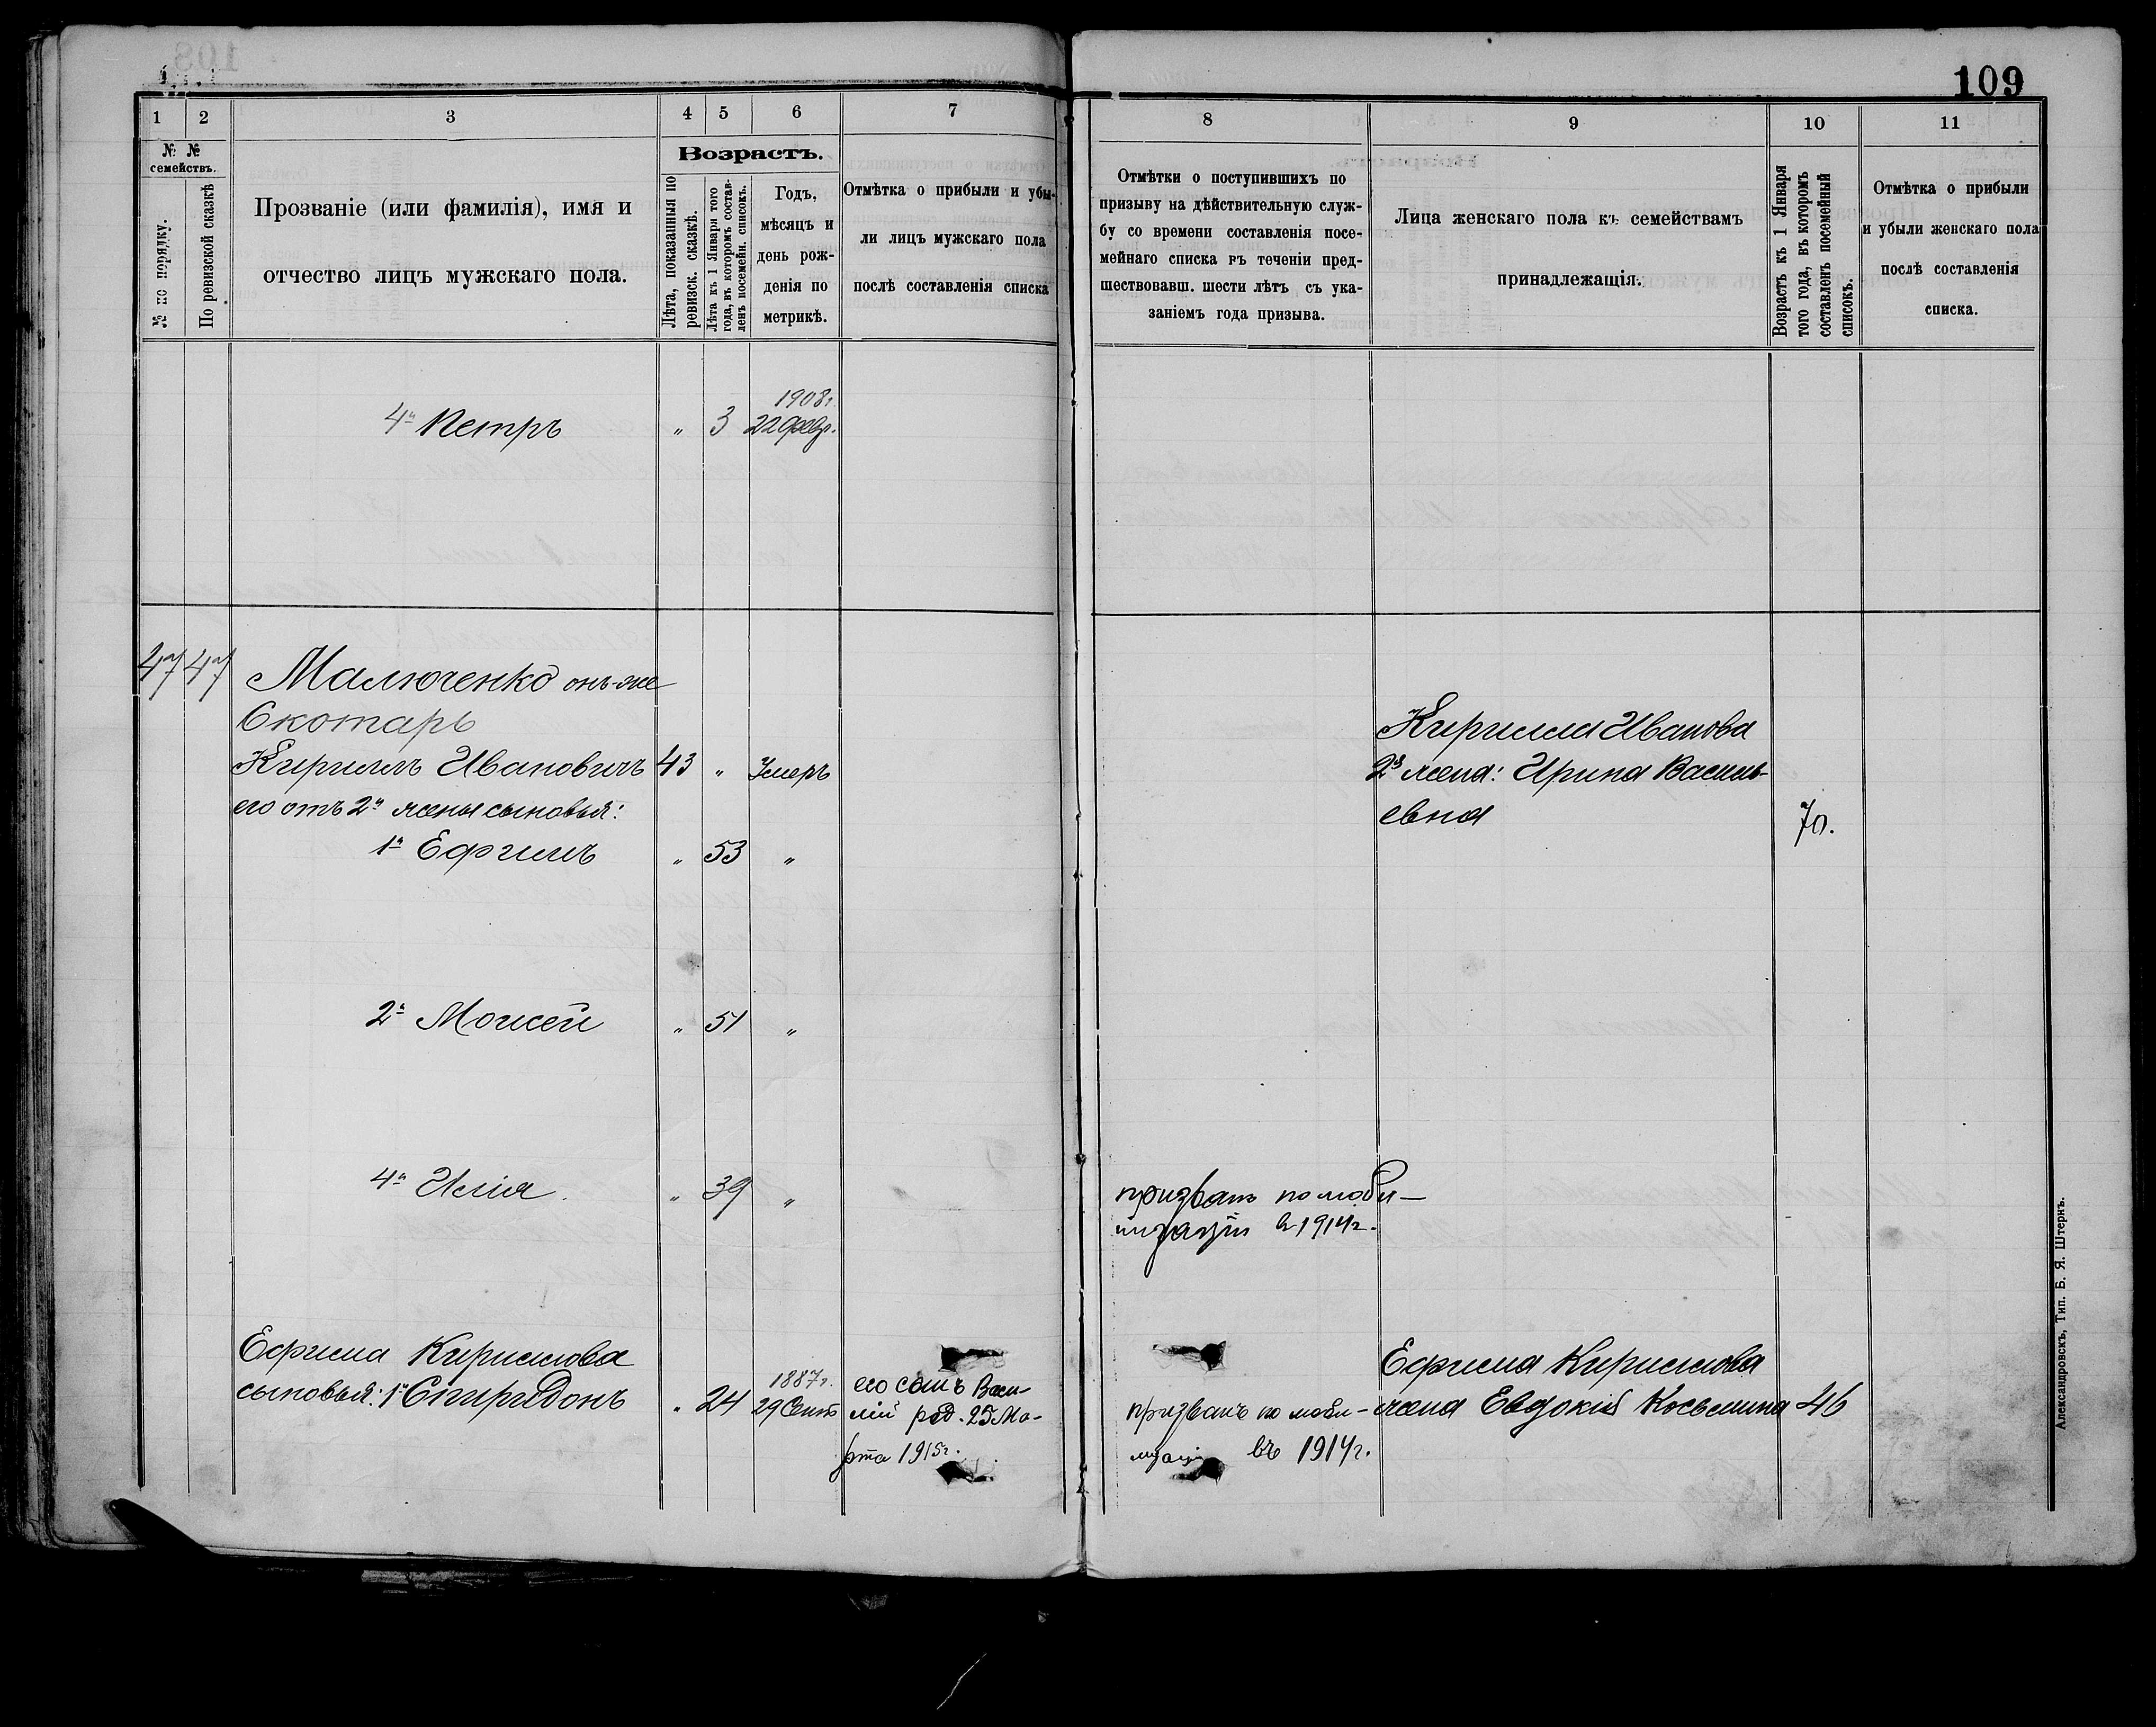 109
1 2 3 4 5 6 7
№ № семействъ.
№ по порядку.
По ревизской сказкѣ
Прозваніе (или фамилія), имя и
отчество лицъ мужскаго пола.
Возрастъ.
Лѣта, показанныя по
ревизск. сказкѣ.
Лѣта къ 1 Января того
года, въ которомъ состав-
ленъ посемейн. списокъ.
Годъ,
мѣсяцъ и
день рож-
денія по
метрикѣ.
Отмѣтка о прибыли и убы-
ли лицъ мужскаго пола
послѣ составленія списка
4й Петръ " 3 1908г.
22 Февр.
47 47 Малюченко онъ-же
Скотарь
Кириллъ Ивановичъ 43 " Умеръ
его отъ 2й жены сыновья:
1й Ефимъ " 53 "
2й Моисей " 51 "
4й Илія " 39 "
Ефима Кириллова
сыновья: 1й Спиридонъ " 24 1887г.
29 Сент
его сынъ Васи-
лій род. 25 Ма-
рта 1915г.
8 9 10 11
Отмѣтки о поступившихъ по
призыву на дѣйствительную служ-
бу со времени составленія посе-
мейнаго списка въ теченіи пред-
шествовавш. шести лѣтъ съ ука-
заніемъ года призыва.
Лица женскаго пола къ семействамъ
принадлежащія.
Возрастъ къ 1 Января
того года, въ которомъ
составленъ посемейный
списокъ.
Отмѣтка о прибыли
и убыли женскаго пола
послѣ составленія
списка.
Кирилла Иванова
2я жена: Ирина Василь-
евна 70.
призванъ по моби-
лизаціи в 1914г.
Ефима Кириллова
жена Евдокія Косьмина 46
призванъ по моби-
въ 1914г.
Александровскъ, Тип. Б. Я. Штернъ.